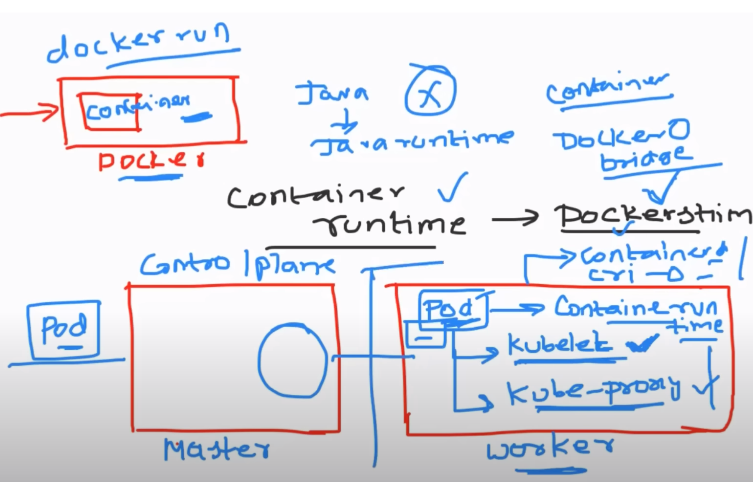 docker run
container
Docker
Java
X
Java runtime
container
Docker0
bridge
Container
runtime → Dockershim
containerd
cri-o
Control plane
Pod
Pod → Container run
time
Kubelet
Kube-proxy
Master
worker